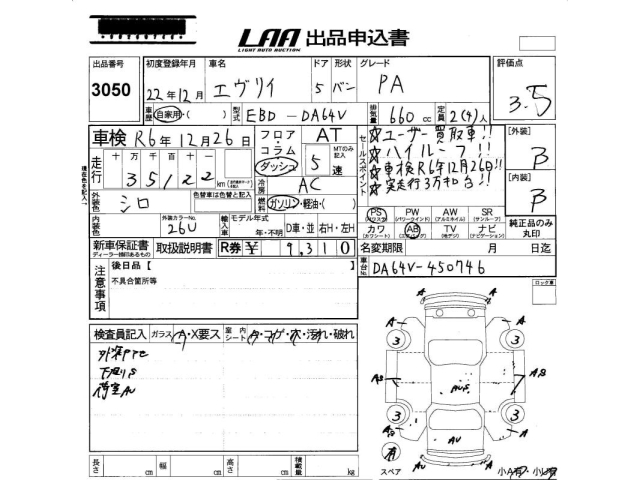 LAA 出品申込書
LIGHT AUTO AUCTION
出品番号
3050
初度登録年月
22年12月
車名
エヴリイ
ドア
5
形状
バン
グレード
PA
評価点
3.5
車歴
自家用・( )
型式
EBD-DA64V
排気量
660cc
定員
2(4)人
車検 R6年12月26日
フロア・コラム
ダッシュ
AT
MTのみ記入
5速
セールスポイント
☆ユーザー買取車!!
☆ハイルーフ!!
☆車検R6年12月26日!!
☆実走行3万キロ台!!
[外装]
B
[内装]
B
走行
十万千百十一
35122
km
現在色を記入
外装色
シロ
色替車は色替と記入
冷房
AC
燃料
ガソリン・軽油・( )
内装色
外装カラーNo.
26U
輸入車
モデル年式
年・不明
D車・並
右H・左H
PS
(パワステ)
PW
(パワーウインド)
AW
(アルミホイル)
SR
(サンルーフ)
カワ
(カワシート)
AB
(エアバッグ)
TV
(テレビ)
ナビ
(ナビゲーション)
純正品のみ丸印
新車保証書
ディーラー捺印あるもの
取扱説明書
R券
¥9,310
名変期限
月
日迄
車台No.
DA64V-450746
注意事項
後日品【
】
不具合箇所等
ロック車
検査員記入
ガラス
A・X要ス
室内シート
タ・コゲ・穴・汚れ・破れ
外装PTE
下廻りS
荷室AU
A
A
3
3
AS
AUS
AB
3
3
A
AU
AU
A
スペア
有
小A有・小U有
長さ
cm
幅
cm
高さ
cm
積載量
kg